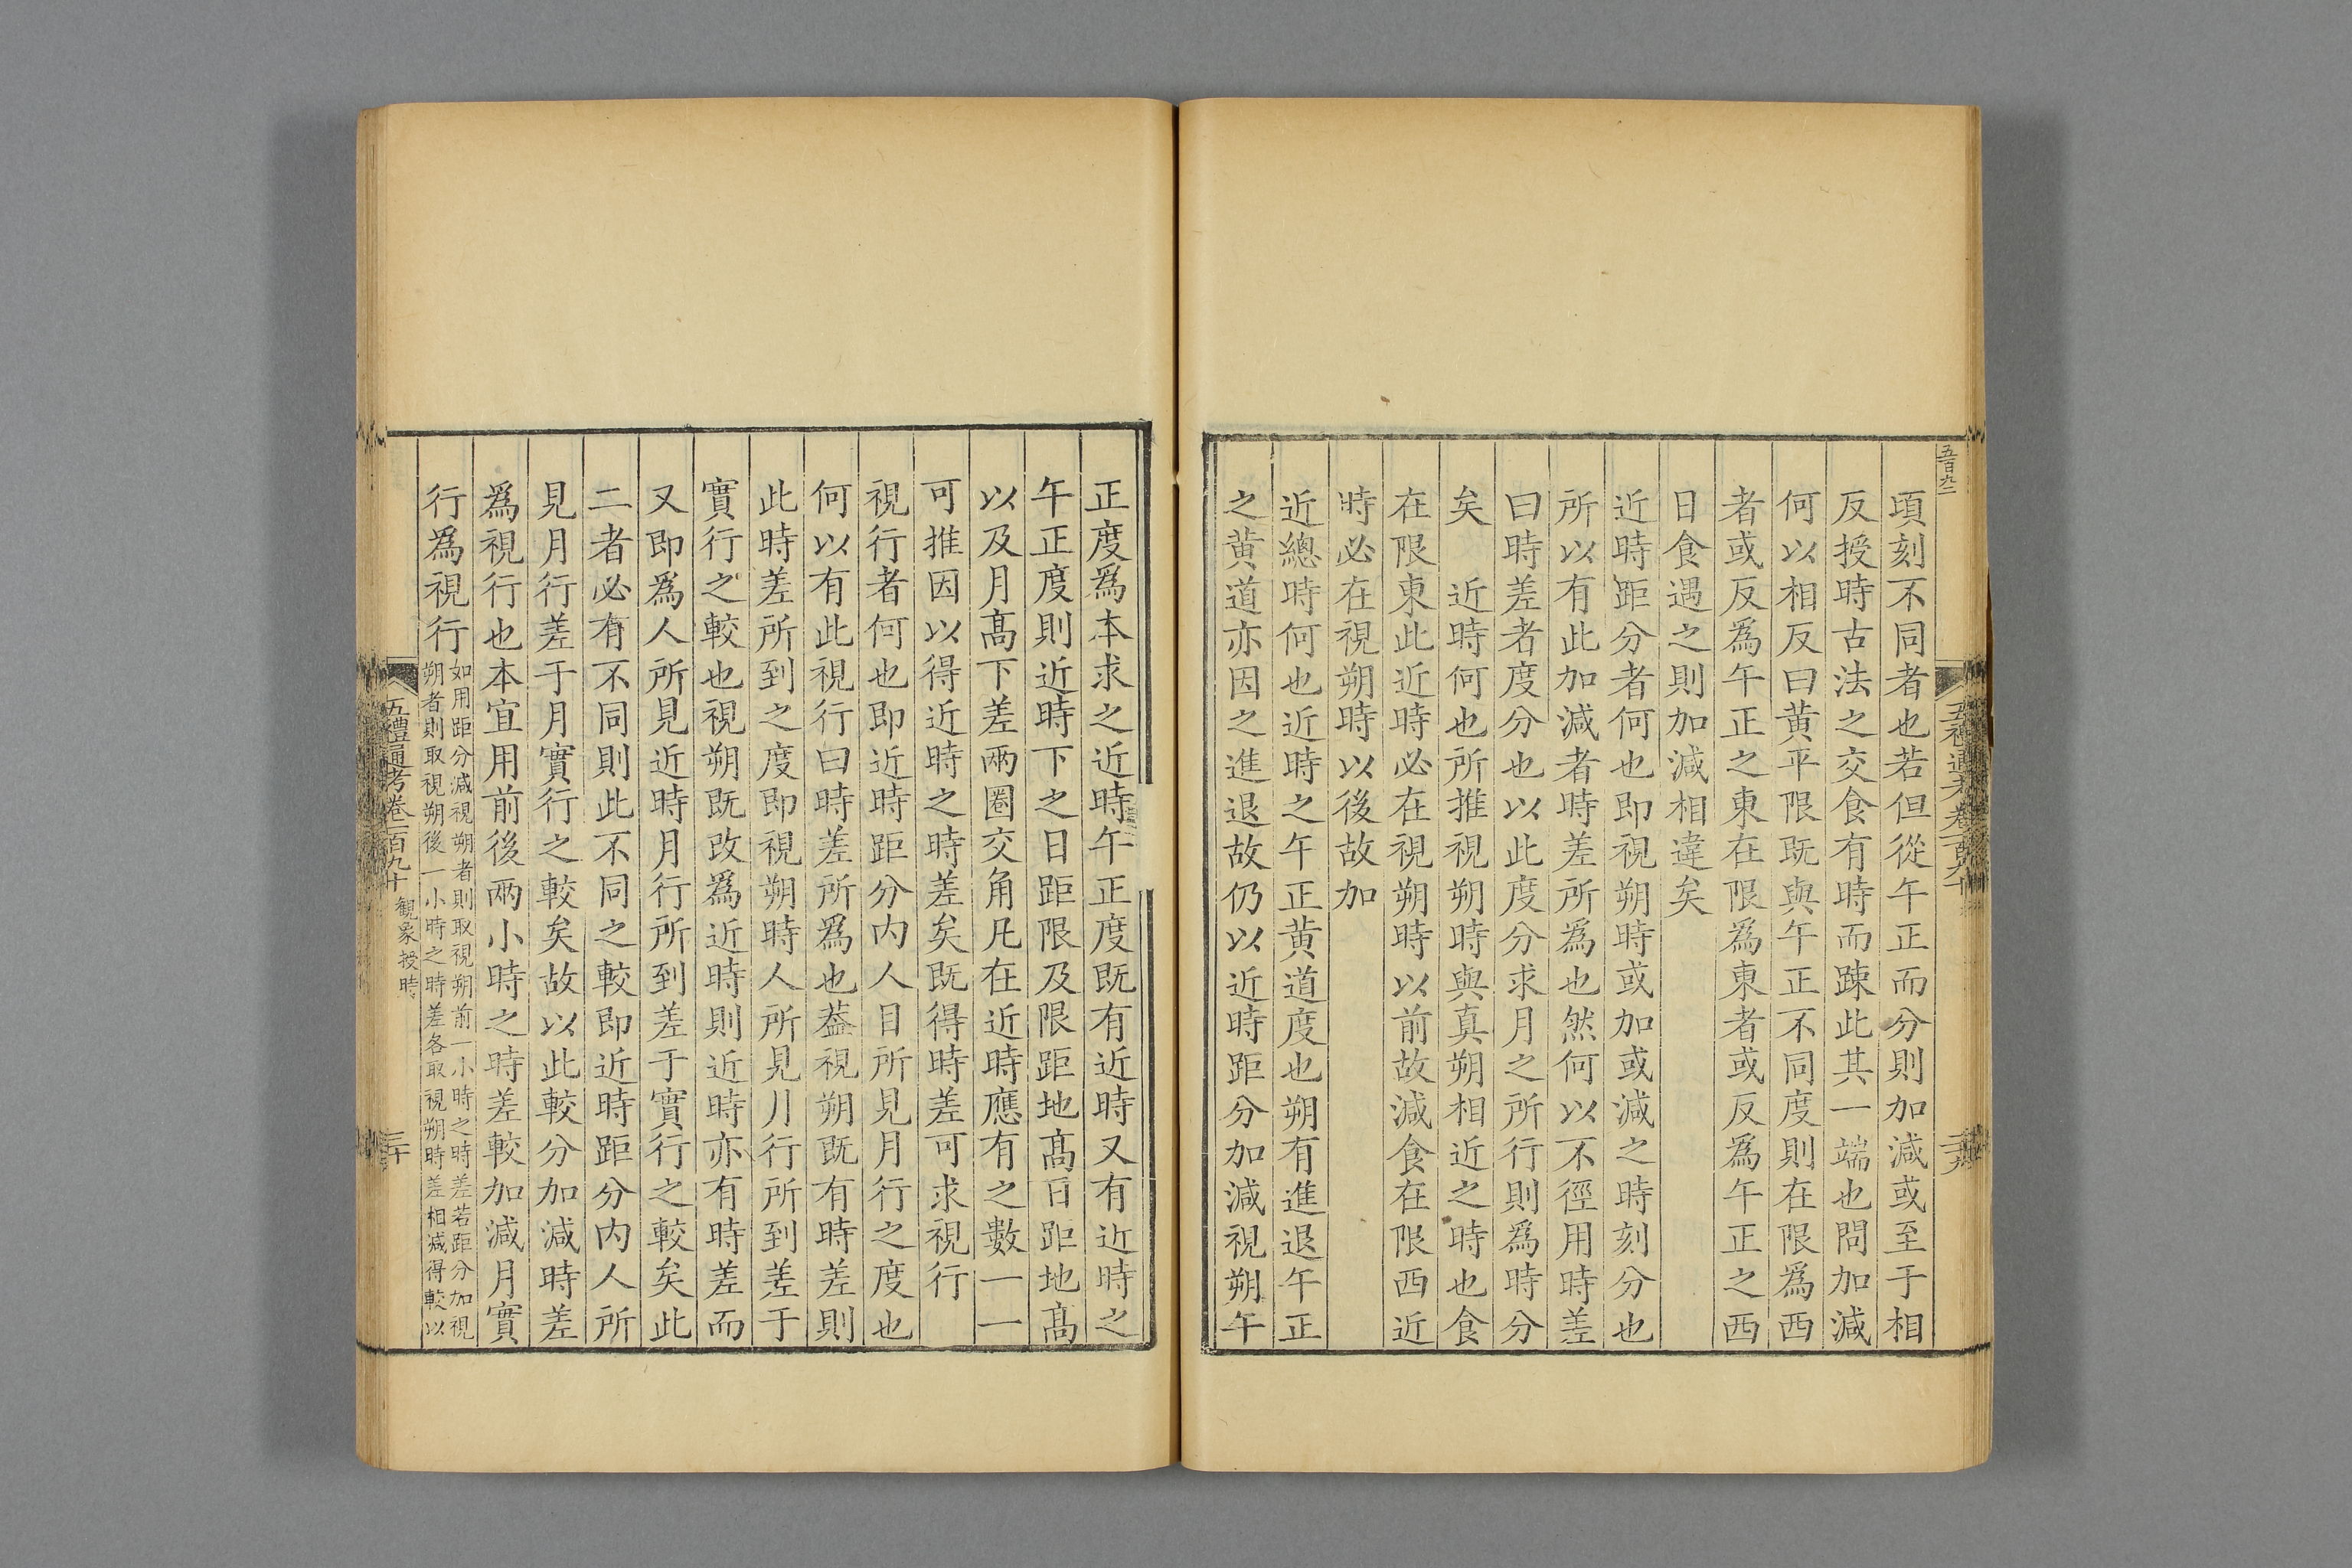 五百九二
頃刻不同者也若但從午正而分則加減或至于相
反授時古法之交食有時而踈此其一端也問加減
何以相反曰黄平限既與午正不同度則在限爲西
者或反爲午正之東在限爲東者或反爲午正之西
日食遇之則加減相違矣
近時距分者何也即視朔時或加或減之時刻分也
所以有此加減者時差所爲也然何以不徑用時差
曰時差者度分也以此度分求月之所行則爲時分
矣　近時何也所推視朔時與真朔相近之時也食
在限東此近時必在視朔時以前故減食在限西近
時必在視朔時以後故加
近總時何也近時之午正黄道度也朔有進退午正
之黄道亦因之進退故仍以近時距分加減視朔午
正度爲本求之近時午正度既有近時又有近時之
午正度則近時下之日距限及限距地髙日距地髙
以及月髙下差兩圈交角凡在近時應有之數一一
可推因以得近時之時差矣既得時差可求視行
視行者何也即近時距分内人目所見月行之度也
何以有此視行曰時差所爲也葢視朔既有時差則
此時差所到之度即視朔時人所見月行所到差于
實行之較也視朔既改爲近時則近時亦有時差而
又即爲人所見近時月行所到差于實行之較矣此
二者必有不同則此不同之較即近時距分内人所
見月行差于月實行之較矣故以此較分加減時差
爲視行也本宜用前後兩小時之時差較加減月實
行爲視行
如用距分減視朔者則取視朔前一小時之時差若距分加視
朔者則取視朔後一小時之時差各取視朔時差相減得較以
五禮通考卷一百九十
觀象授時
三十